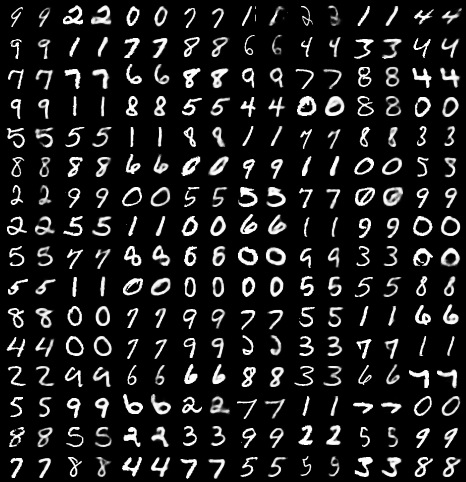 9 9 2 2 0 0 7 7 1 1 2 2 1 1 4 4
9 9 1 1 7 7 8 8 6 6 4 4 3 3 4 4
7 7 7 7 6 6 8 8 9 9 7 7 8 8 4 4
9 9 1 1 8 8 5 5 4 4 0 0 8 8 0 0
5 5 5 5 1 1 8 9 1 1 7 7 8 8 3 3
8 8 8 8 6 6 0 0 9 9 1 1 0 0 5 5
2 2 9 9 0 0 5 5 5 5 7 7 0 0 9 9
2 2 5 5 1 1 0 0 6 6 1 1 9 9 0 0
5 5 7 7 8 8 6 6 0 0 9 9 3 3 0 0
5 5 1 1 0 0 0 0 0 0 5 5 5 5 8 8
8 8 0 0 7 7 9 9 7 7 5 5 1 1 6 6
4 4 0 0 7 7 9 9 2 2 3 3 7 7 1 1
2 2 9 9 6 6 6 6 8 8 3 3 6 6 7 7
5 5 9 9 6 6 2 2 7 7 1 1 7 7 0 0
8 8 5 5 2 2 3 3 9 9 2 2 5 5 9 9
7 7 8 8 4 4 7 7 5 5 5 9 3 3 8 8